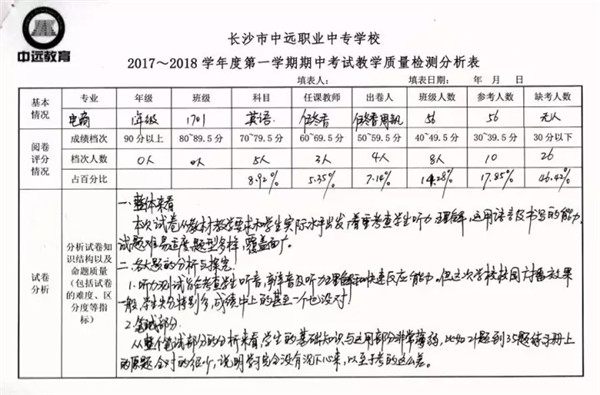 中远教育
长沙市中远职业中专学校
2017～2018 学年度第一学期期中考试教学质量检测分析表
填表人： 填表日期： 年 月 日
基本情况 专业 年级 班级 科目 任课教师 出卷人 班级人数 参考人数 缺考人数
电商 1年级 1701 英语 56 56 无人
阅卷评分情况 成绩档次 90 分以上 80~89.5 分 70~79.5 分 60~69.5 分 50~59.5 分 40~49.5 分 30~39.5 分 30 分以下
档次人数 0人 0人 5人 3人 4人 8人 10 26
占百分比 8.92% 5.35% 7.14% 14.28% 17.85% 46.42%
试卷分析 分析试卷知识结构以及命题质量（包括试卷的难度、区分度等指标）
一.整体来看
本次试卷从教材教学要求和学生实际水平出发,着重考查学生听力 理解,运用语言及书写的能力.
试题难易适度,题型多样,覆盖面广.
二.各大题的分析与探究
1.听力测试旨在考查学生听音,辨语音及听力理解和快速反应能力,但这次学校校园广播效果
一般,学生失分特别多,成绩中上的甚至一个也没对
2.笔试部分
从整个笔试部分的分析来看,学生的基础知识与运用部分非常薄弱,比如21题到35题练习册上
的原题 全对的很少,说明学习完全没有沉下心来,以至于考的这么差.